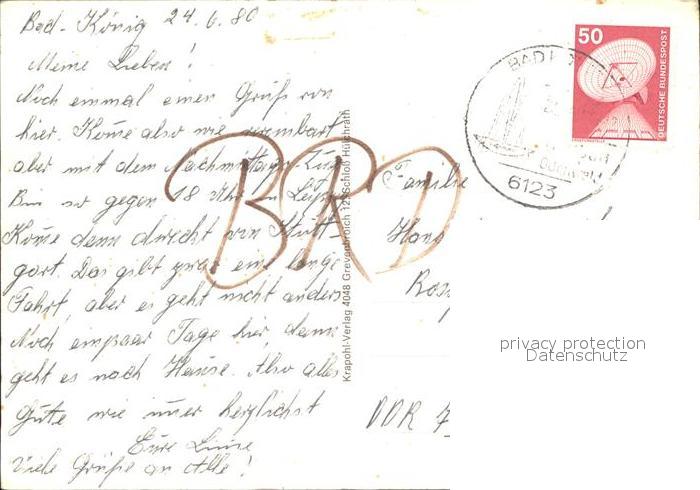 Bad-König 24.6.80
Meine Lieben!
Noch einmal einen Gruß von
hier. Kome also wie vereinbart
aber mit dem Nachmittags-Zug
Bin so gegen 18 Uhr in
Kome dann direckt von Stutt-
gart. Das gibt zwar eine lange
Fahrt, aber es geht nicht anders
Noch einpaar Tage hier, dann
geht es nach Hause. Also alles
Gute wie imer herzlichst
Eure
Viele Grüße an Alle!
BRD
Krapohl-Verlag 4048 Grevenbroich 12, Schloß Hülchrath
Familie
Hans
DDR 7
50
DEUTSCHE BUNDESPOST
BAD
6123
privacy protection
Datenschutz